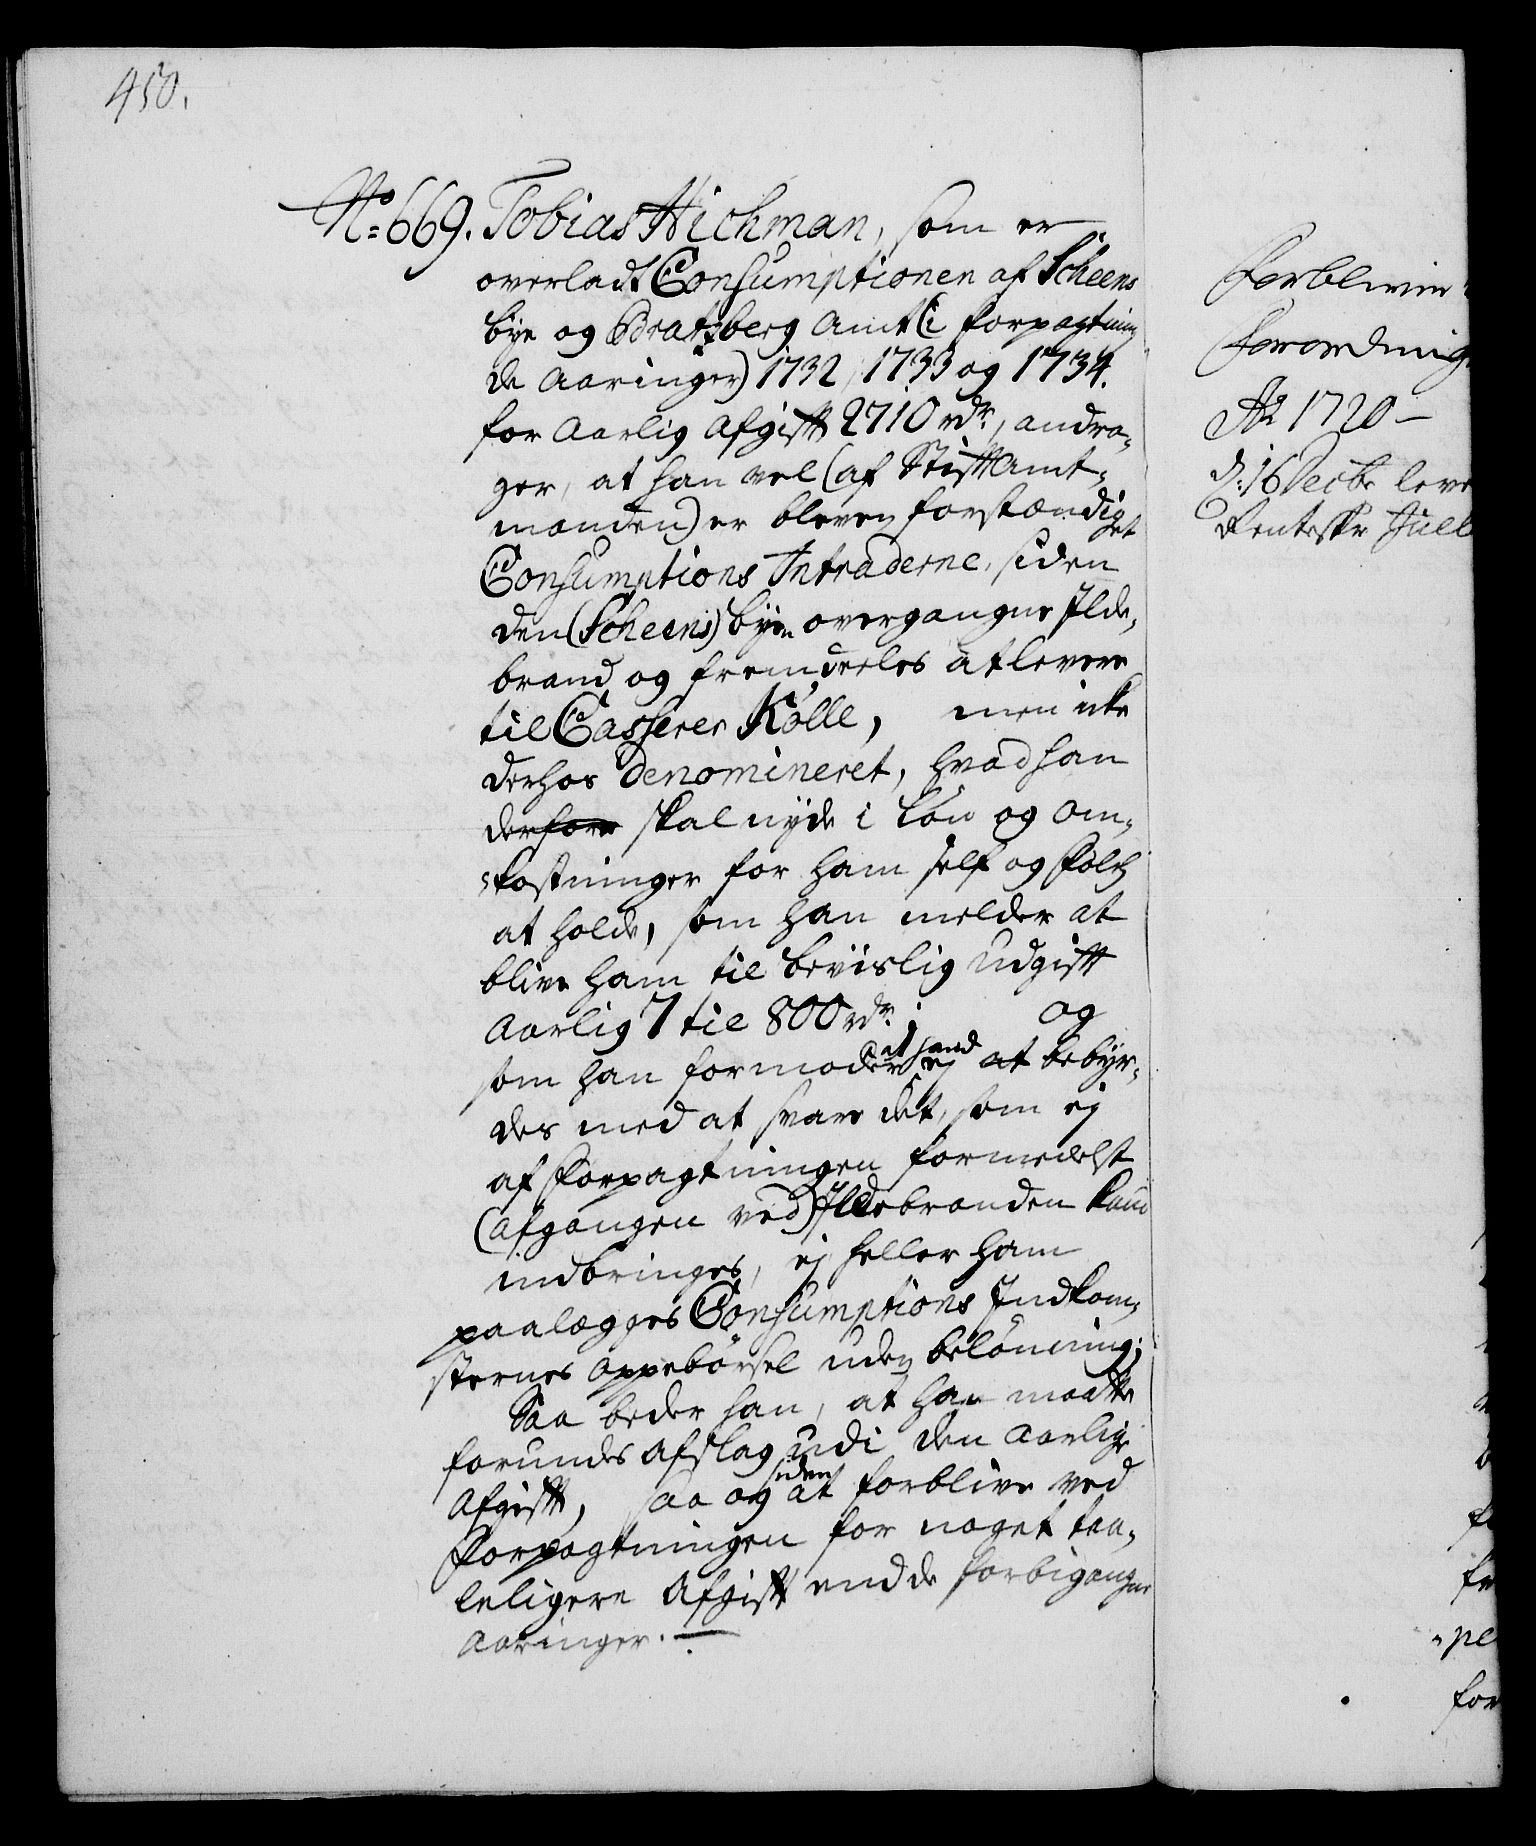 450.
No: 669. Tobias Hichman, som er
overladt Consumptionen af Scheens
bye og Bratzberg Amt (i forpagtning
de Aaringer) 1732, 1733 og 1734.
for Aarlig Afgifft 2710 rdr., andra-
ger, at han vel (af Stifft Amt-
manden) er bleven forstændiget
Consumptions Intraderne, siden
den (Scheens) byen overgangne Ilde-
brand og fremdeeles at levere
til Casserer Kölle, men icke
derhos denomineret, hvad han
derfore skal nyde i Lön og Om-
kostninger for ham self og Folch
at holde, som han melder at
blive ham til bevislig Udgifft
Aarlig 7 til 800 rdr.; og
som han formoder at hand ej at bebyr-
des med at svare det, som ej
af Forpagtningen formedelst
(afgangen ved) Ildebranden kand
indbringes, ej heller ham
paalægges Consumptions Indkom-
sternes oppebörsel uden belönning;
Saa beder han, at han maatte
forundes Afslag udi den Aarlige
Afgifft, saa og siden at forblive ved
Forpagtningen for noget taa-
leligere Afgifft end de forbigangne
Aaringer.
Forbliver
Forordning
Ao 1720
d: 16 Decbr leve
Renteskr Juel
pe
for